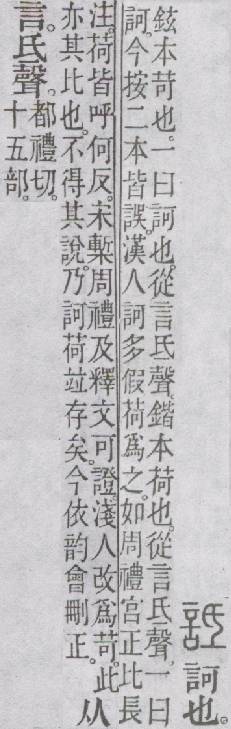 詆 訶也。
鉉本苛也。一曰訶也。從言氐聲。鍇本荷也。從言氐聲。一曰
訶。今按二本皆誤。漢人訶多假荷爲之。如周禮宮正比長
注。荷皆呼何反。宋槧周禮及釋文可證。淺人改爲苛。此
亦其比也。不得其說。乃訶荷竝存矣。今依韵會刪正。
从
言。氐聲。都禮切。
十五部。